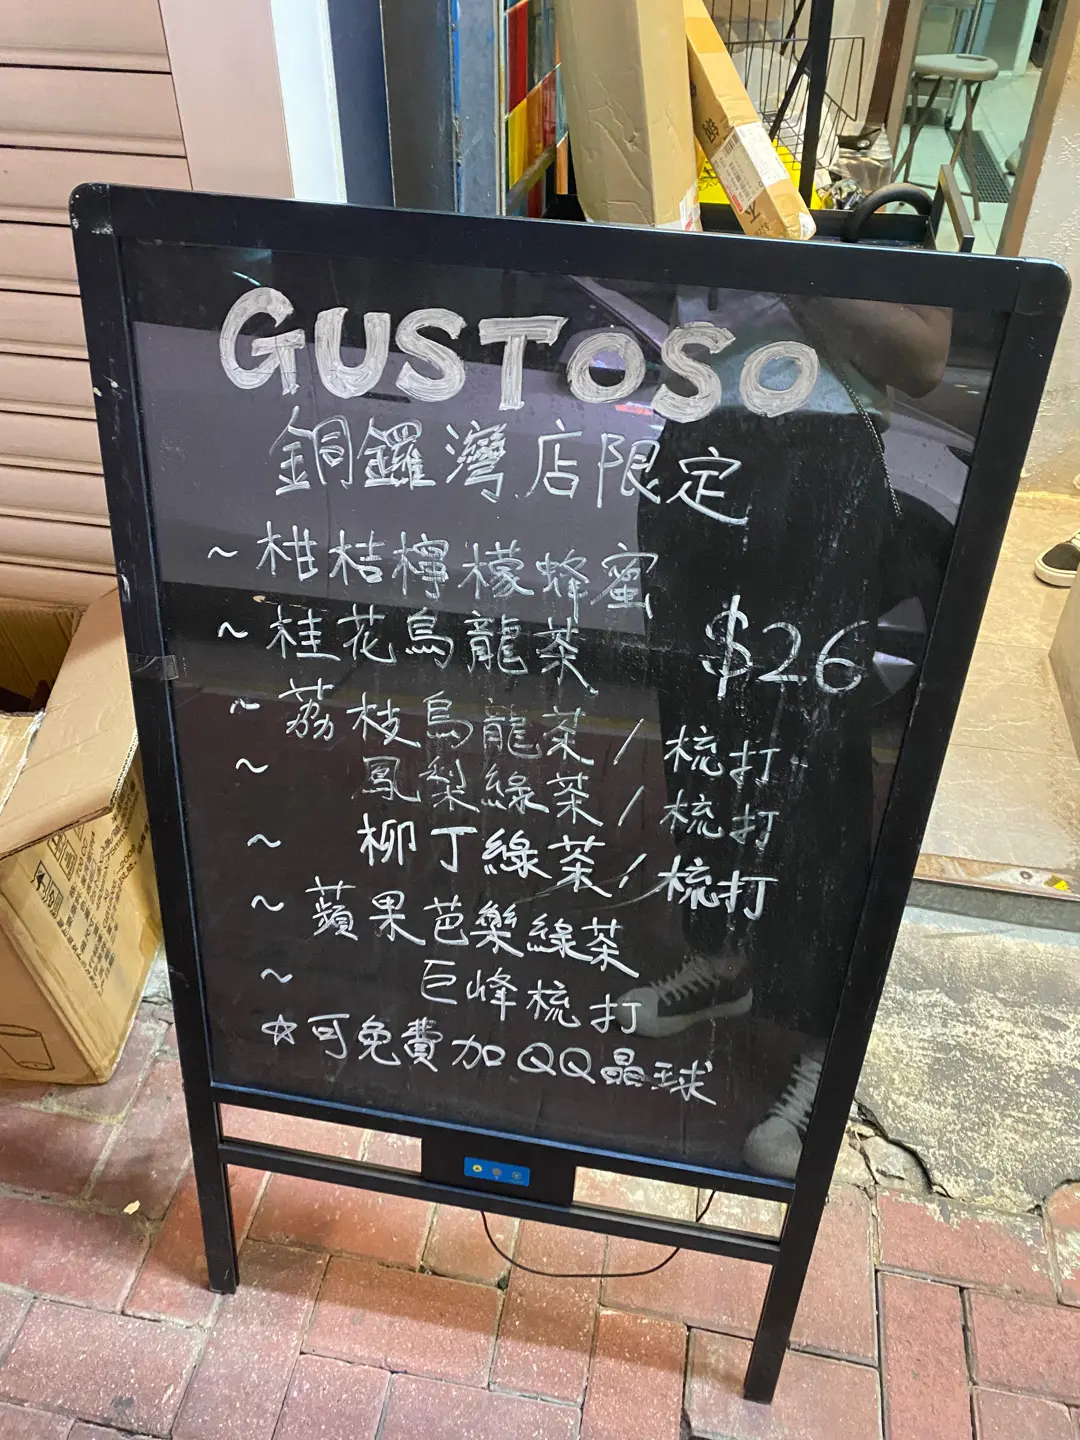 GUSTOSO
銅鑼灣店限定
~ 柑桔檸檬蜂蜜
~ 桂花烏龍茶 $26
~ 荔枝烏龍茶 / 梳打
~ 鳳梨綠茶 / 梳打
~ 柳丁綠茶 / 梳打
~ 蘋果芭樂綠茶
~ 巨峰梳打
☆可免費加QQ晶球